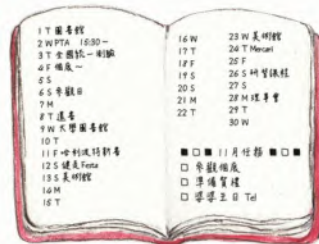 1 T 圖書館
2 W PTA 15:30~
3 T 全國統一測驗
4 F 個底~
5 S
6 S 參觀日
7 M
8 T 還書
9 W 大學圖書館
10 T
11 F 哈利波特新書
12 S 健走Festa
13 S 美術館
14 M
15 T
16 W
17 T
18 F
19 S
20 S
21 M
22 T
23 W 美術館
24 T Mercel
25 F
26 S 研習課程
27 S
28 M 理事會
29 T
30 W
■□■ 11月任務 ■□■
□ 參觀個底
□ 準備賀禮
□ 婆婆生日 Tel